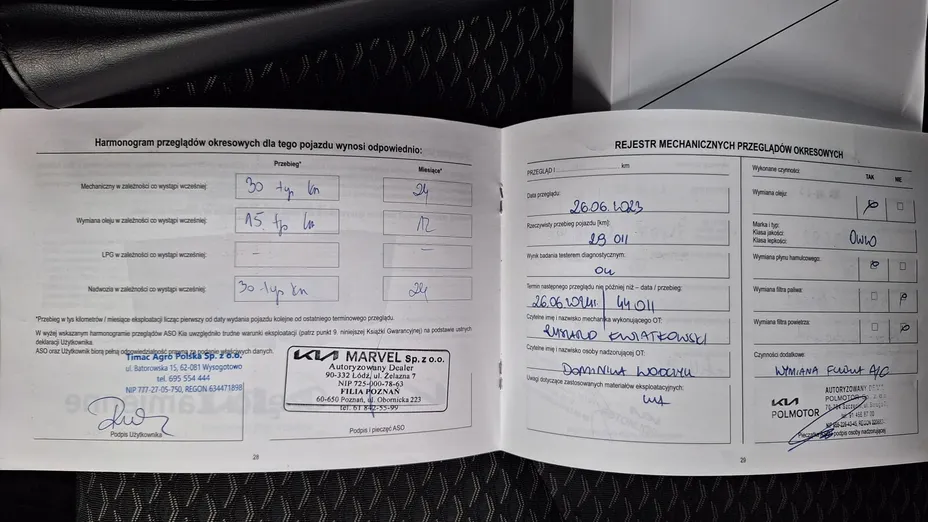 Harmonogram przeglądów okresowych dla tego pojazdu wynosi odpowiednio:
Przebieg*
Miesiące*
Mechaniczny w zależności co wystąpi wcześniej:
30 tyś km
24
Wymiana oleju w zależności co wystąpi wcześniej:
15 tyś km
12
LPG w zależności co wystąpi wcześniej:
-
-
Nadwozia w zależności co wystąpi wcześniej:
30 tyś km
24
*Przebieg w tys kilometrów / miesiące-eksploatacji licząc pierwszej od daty wydania pojazdu kolejne od ostatniego terminowego przeglądu.
W wyżej wskazanym harmonogramie przeglądów ASO Kia uwzględniło trudne warunki eksploatacji (patrz punkt 9. niniejszej Książki Gwarancyjnej) na podstawie ustnych
deklaracji Użytkownika.
ASO oraz Użytkownik biorą pełną odpowiedzialność
Timac Agro Polska Sp. z o.o.
ul. Batorowska 15, 62-081 Wysogotowo
tel. 695 554 444
NIP 777-27-05-750, REGON 634471898
Podpis Użytkownika
KIA MARVEL sp. z o.o.
Autoryzowany Dealer
90-332 Łódź, ul. Żelazna 7
NIP 725-000-78-63
FILIA POZNAŃ
60-650 Poznań, ul. Obornicka 223
tel. 61 842-55-99
Podpis i pieczęć ASO
28
REJESTR MECHANICZNYCH PRZEGLĄDÓW OKRESOWYCH
PRZEGLĄD I
km
Data przeglądu:
26.06.2023
Rzeczywisty przebieg pojazdu [km]:
29 011
Wynik badania testerem diagnostycznym:
OK
Termin następnego przeglądu nie później niż - data / przebieg:
26.06.2024r. / 44 011
Czytelne imię i nazwisko mechanika wykonującego OT:
RYSZARD KWIATKOWSKI
Czytelne imię i nazwisko osoby nadzorującej OT:
DOMINIKA
Uwagi dotyczące zastosowanych materiałów eksploatacyjnych:
Wykonane czynności:
TAK
NIE
Wymiana oleju:
Marka i typ:
Klasa jakości:
Klasa lepkości:
0W20
Wymiana płynu hamulcowego:
Wymiana filtra paliwa:
Wymiana filtra powietrza:
Czynności dodatkowe:
WYMIANA FILTRA A/C
KIA
POLMOTOR
AUTORYZOWANY DEALER
POLMOTOR
Pieczątka i podpis osoby nadzorującej
29